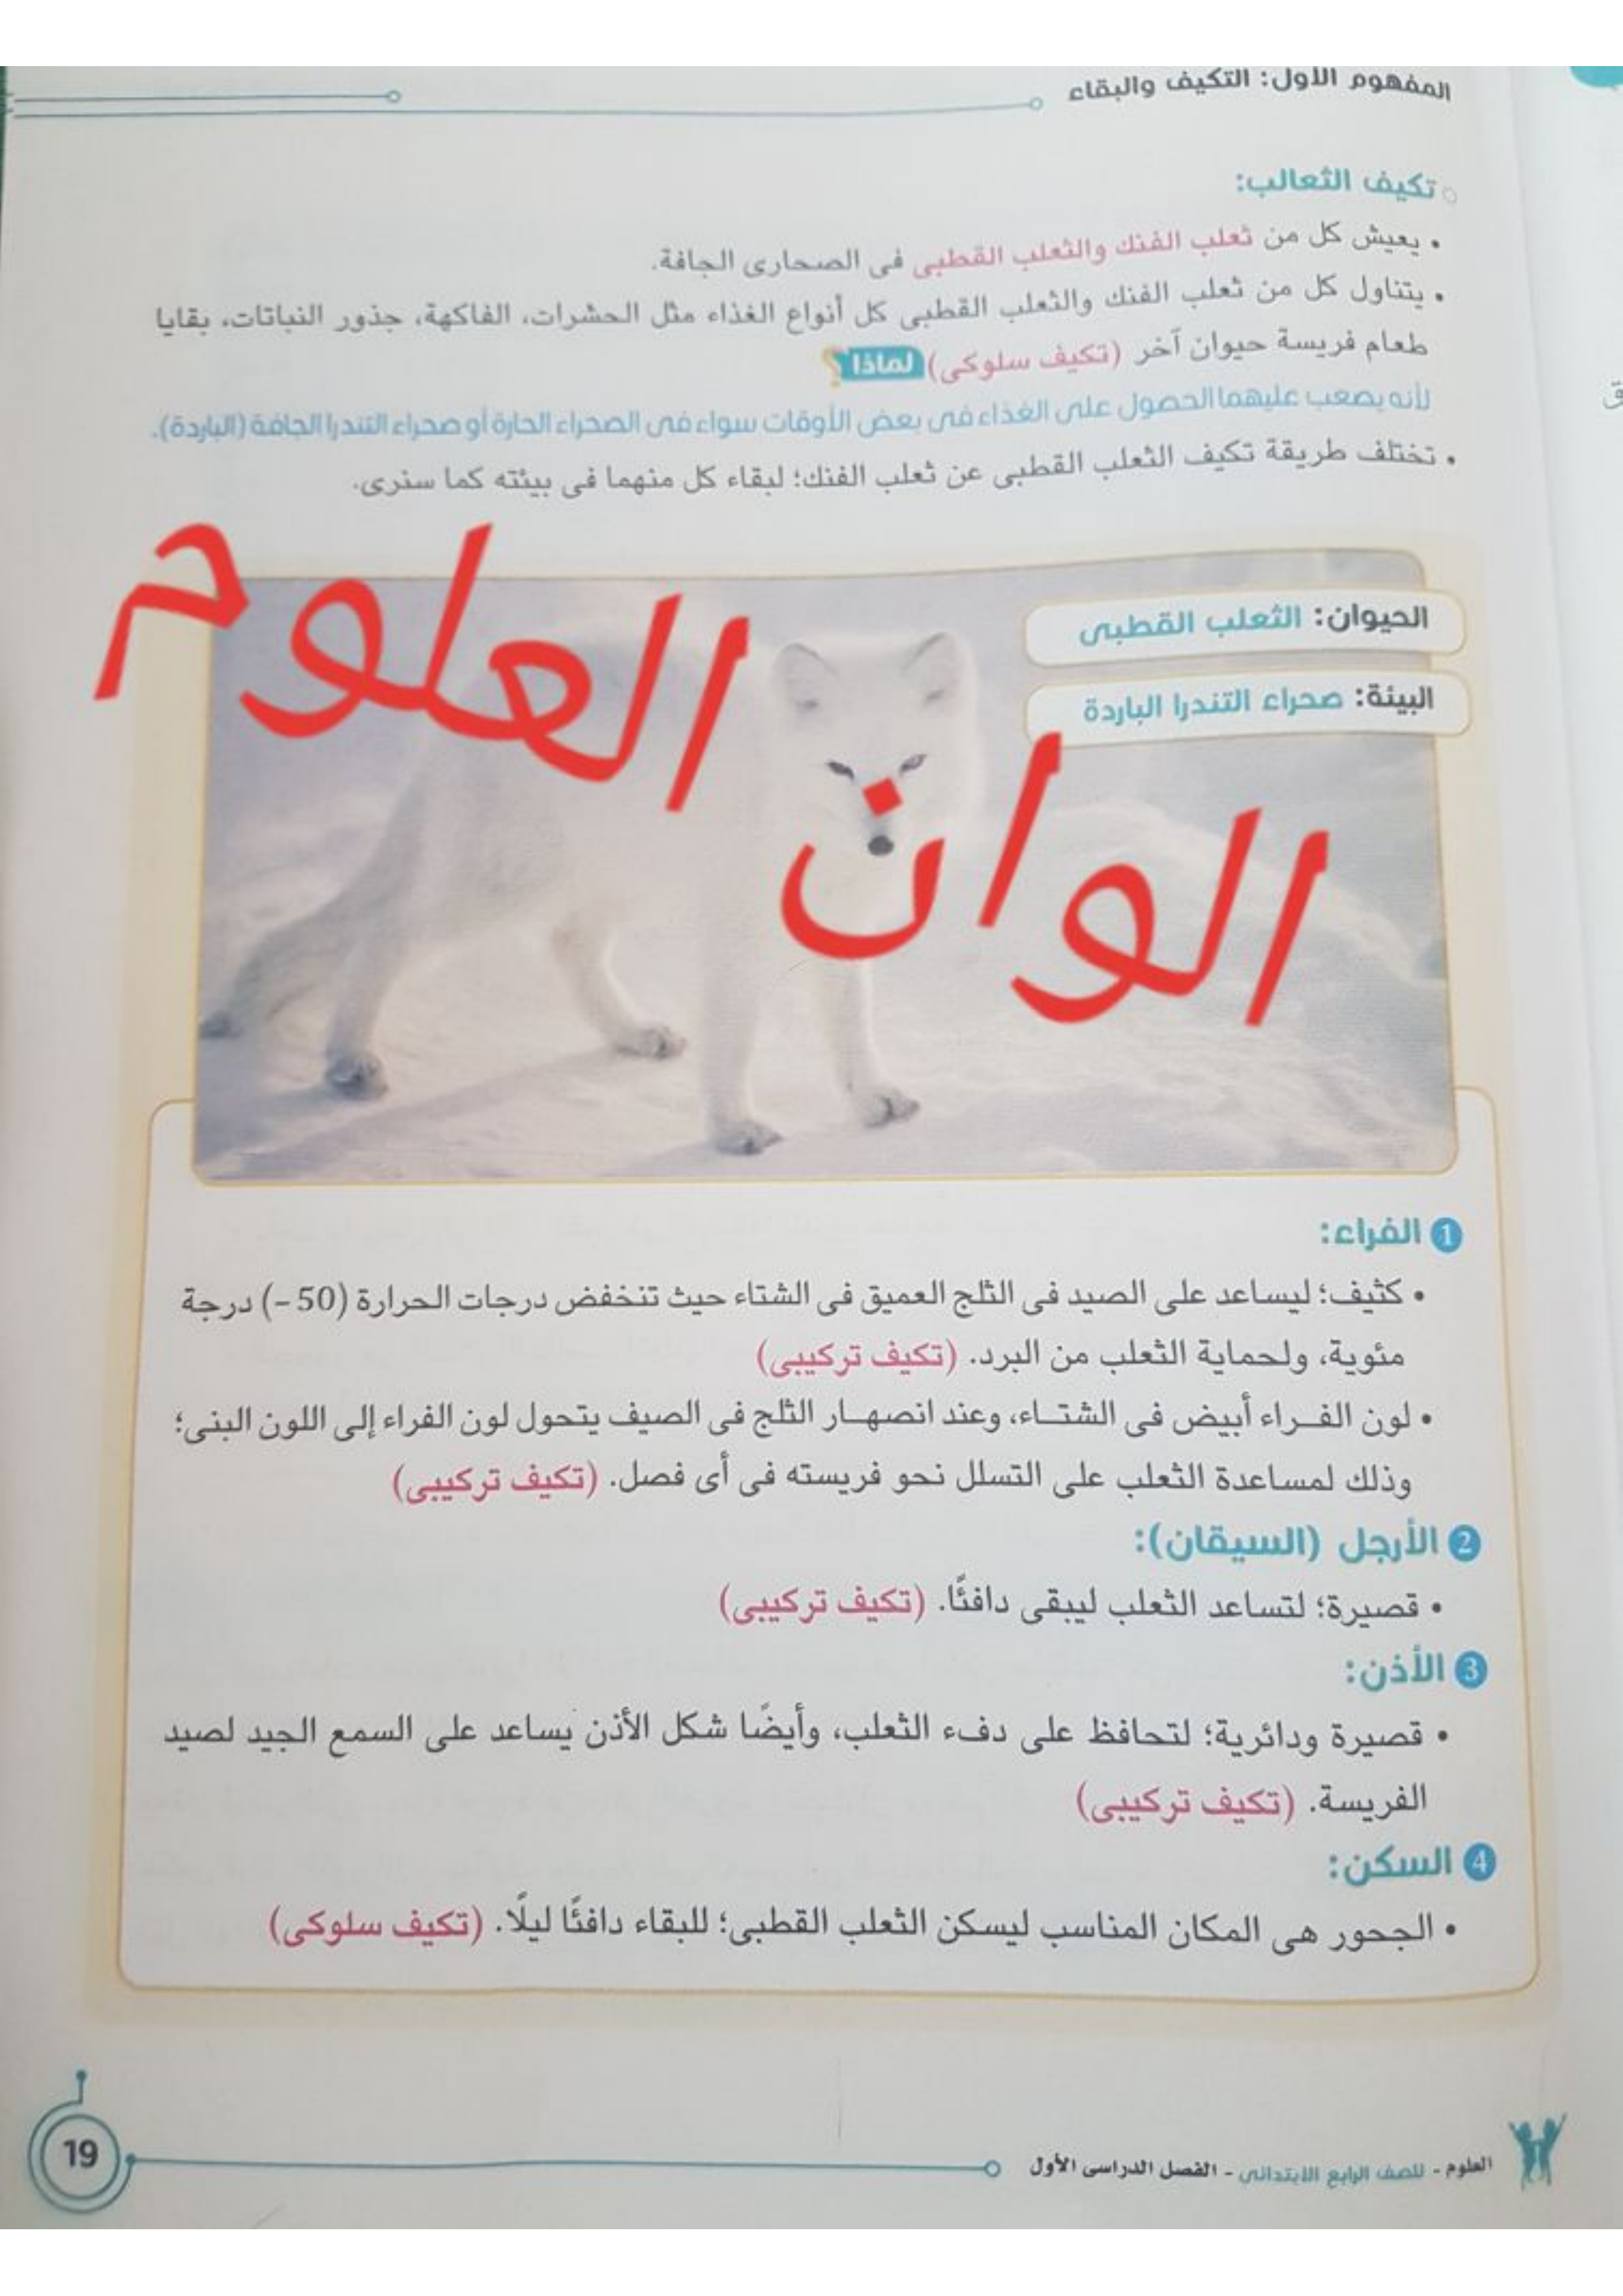 المفهوم الأول: التكيف والبقاء
تكيف الثعالب:
• يعيش كل من ثعلب الفنك والثعلب القطبى فى الصحارى الجافة.
• يتناول كل من ثعلب الفنك والثعلب القطبى كل أنواع الغذاء مثل الحشرات، الفاكهة، جذور النباتات، بقايا
طعام فريسة حيوان آخر (تكيف سلوكى) لماذا؟
لأنه يصعب عليهما الحصول على الغذاء فى بعض الأوقات سواء فى الصحراء الحارة أو صحراء التندرا الجافة (الباردة).
• تختلف طريقة تكيف الثعلب القطبى عن ثعلب الفنك؛ لبقاء كل منهما فى بيئته كما سنرى.
الحيوان: الثعلب القطبى
البيئة: صحراء التندرا الباردة
الوان العلوم
1 الفراء:
• كثيف؛ ليساعد على الصيد فى الثلج العميق فى الشتاء حيث تنخفض درجات الحرارة (50 -) درجة
مئوية، ولحماية الثعلب من البرد. (تكيف تركيبى)
• لون الفراء أبيض فى الشتاء، وعند انصهار الثلج فى الصيف يتحول لون الفراء إلى اللون البنى؛
وذلك لمساعدة الثعلب على التسلل نحو فريسته فى أى فصل. (تكيف تركيبى)
2 الأرجل (السيقان):
• قصيرة؛ لتساعد الثعلب ليبقى دافئًا. (تكيف تركيبى)
3 الأذن:
• قصيرة ودائرية؛ لتحافظ على دفء الثعلب، وأيضًا شكل الأذن يساعد على السمع الجيد لصيد
الفريسة. (تكيف تركيبى)
4 السكن:
• الجحور هى المكان المناسب ليسكن الثعلب القطبى؛ للبقاء دافئًا ليلًا. (تكيف سلوكى)
العلوم - للصف الرابع الابتدائى - الفصل الدراسى الأول
19